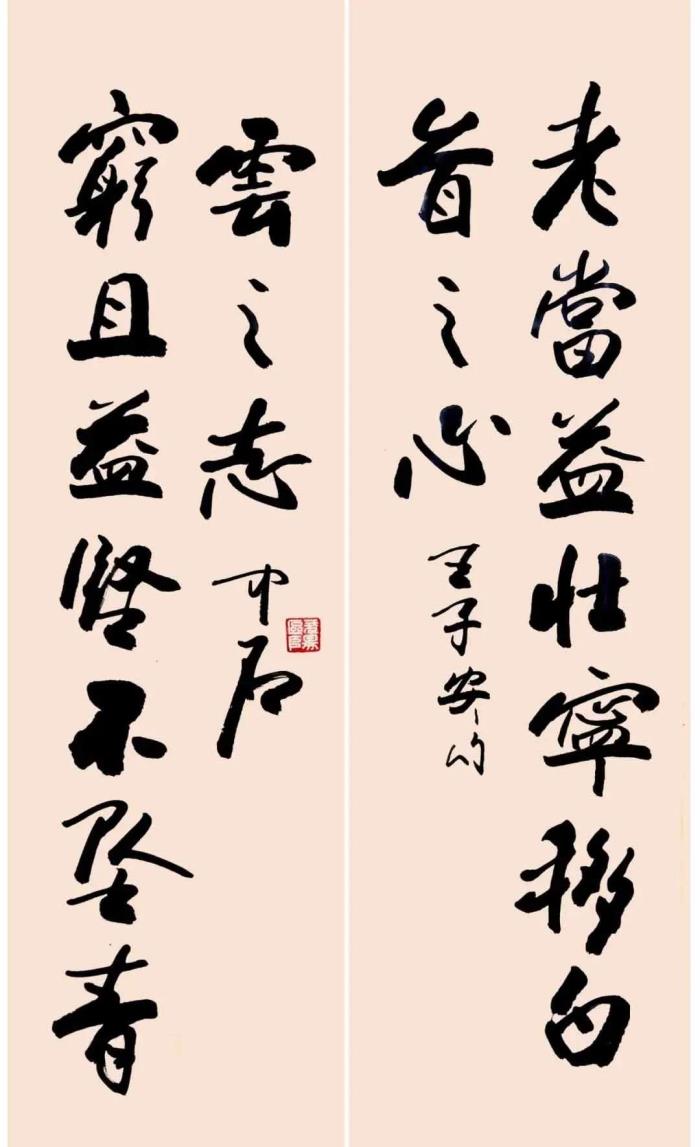 老當益壯寧移白
首之心
王子安句
窮且益堅不墜青
雲之志
中石